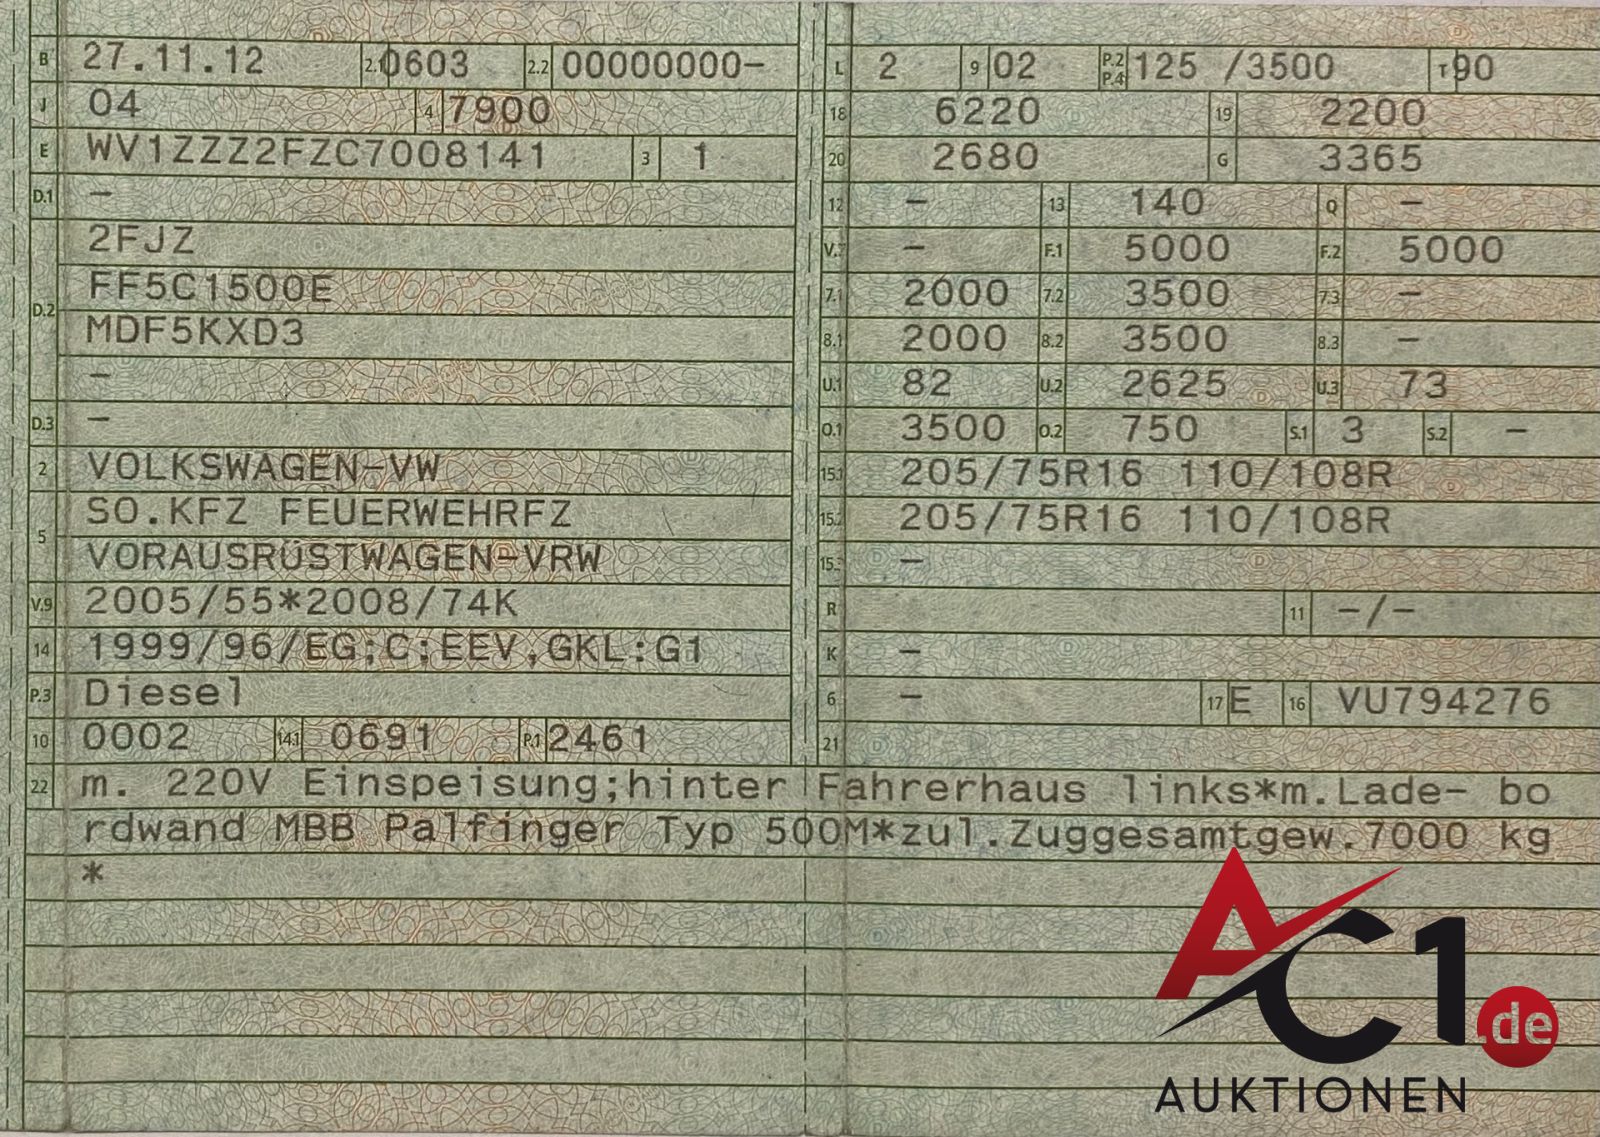 B 27.11.12 2.1 0603 2.2 00000000-
J 04 4 7900
E WV1ZZZ2FZC7008141 3 1
D.1 -
2FJZ
D.2 FF5C1500E
MDF5KXD3
-
D.3 -
2 VOLKSWAGEN-VW
5 SO.KFZ FEUERWEHRFZ
VORAUSRÜSTWAGEN-VRW
V.9 2005/55*2008/74K
14 1999/96/EG;C;EEV,GKL:G1
P.3 Diesel
10 0002 14.1 0691 P.1 2461
L 2 9 02 P.2 P.4 125 /3500 T 90
18 6220 19 2200
20 2680 G 3365
12 - 13 140 Q -
V.7 - F.1 5000 F.2 5000
7.1 2000 7.2 3500 7.3 -
8.1 2000 8.2 3500 8.3 -
U.1 82 U.2 2625 U.3 73
O.1 3500 O.2 750 S.1 3 S.2 -
15.1 205/75R16 110/108R
15.2 205/75R16 110/108R
15.3 -
R 11 -/-
K -
6 - 17 E 16 VU794276
21
22 m. 220V Einspeisung;hinter Fahrerhaus links*m.Lade- bo
rdwand MBB Palfinger Typ 500M*zul.Zuggesamtgew.7000 kg
*
AC1.de
AUKTIONEN